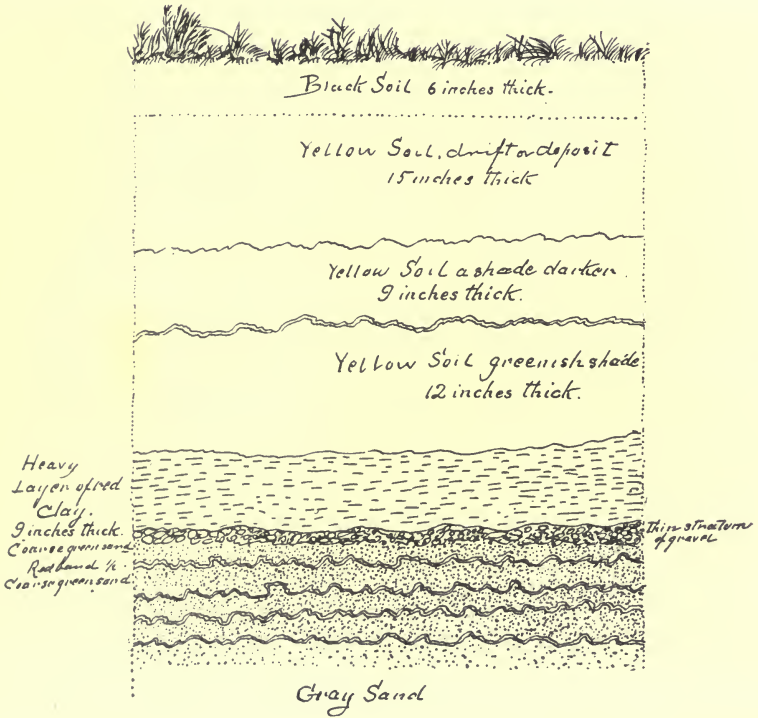 Black Soil 6 inches thick.
Yellow Soil, drift or deposit
15 inches thick
Yellow Soil a shade darker.
9 inches thick.
Yellow Soil greenish shade
12 inches thick.
Heavy
Layer of red
Clay.
9 inches thick.
Coarse green sand
Red band ½.
Coarse green sand
thin stratum
of gravel
Gray Sand